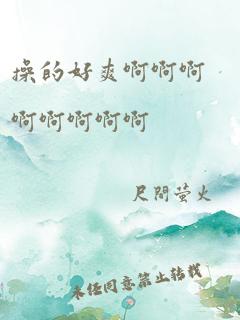 操的好爽啊啊啊
啊啊啊啊啊
尺間萤火
未经同意禁止转载